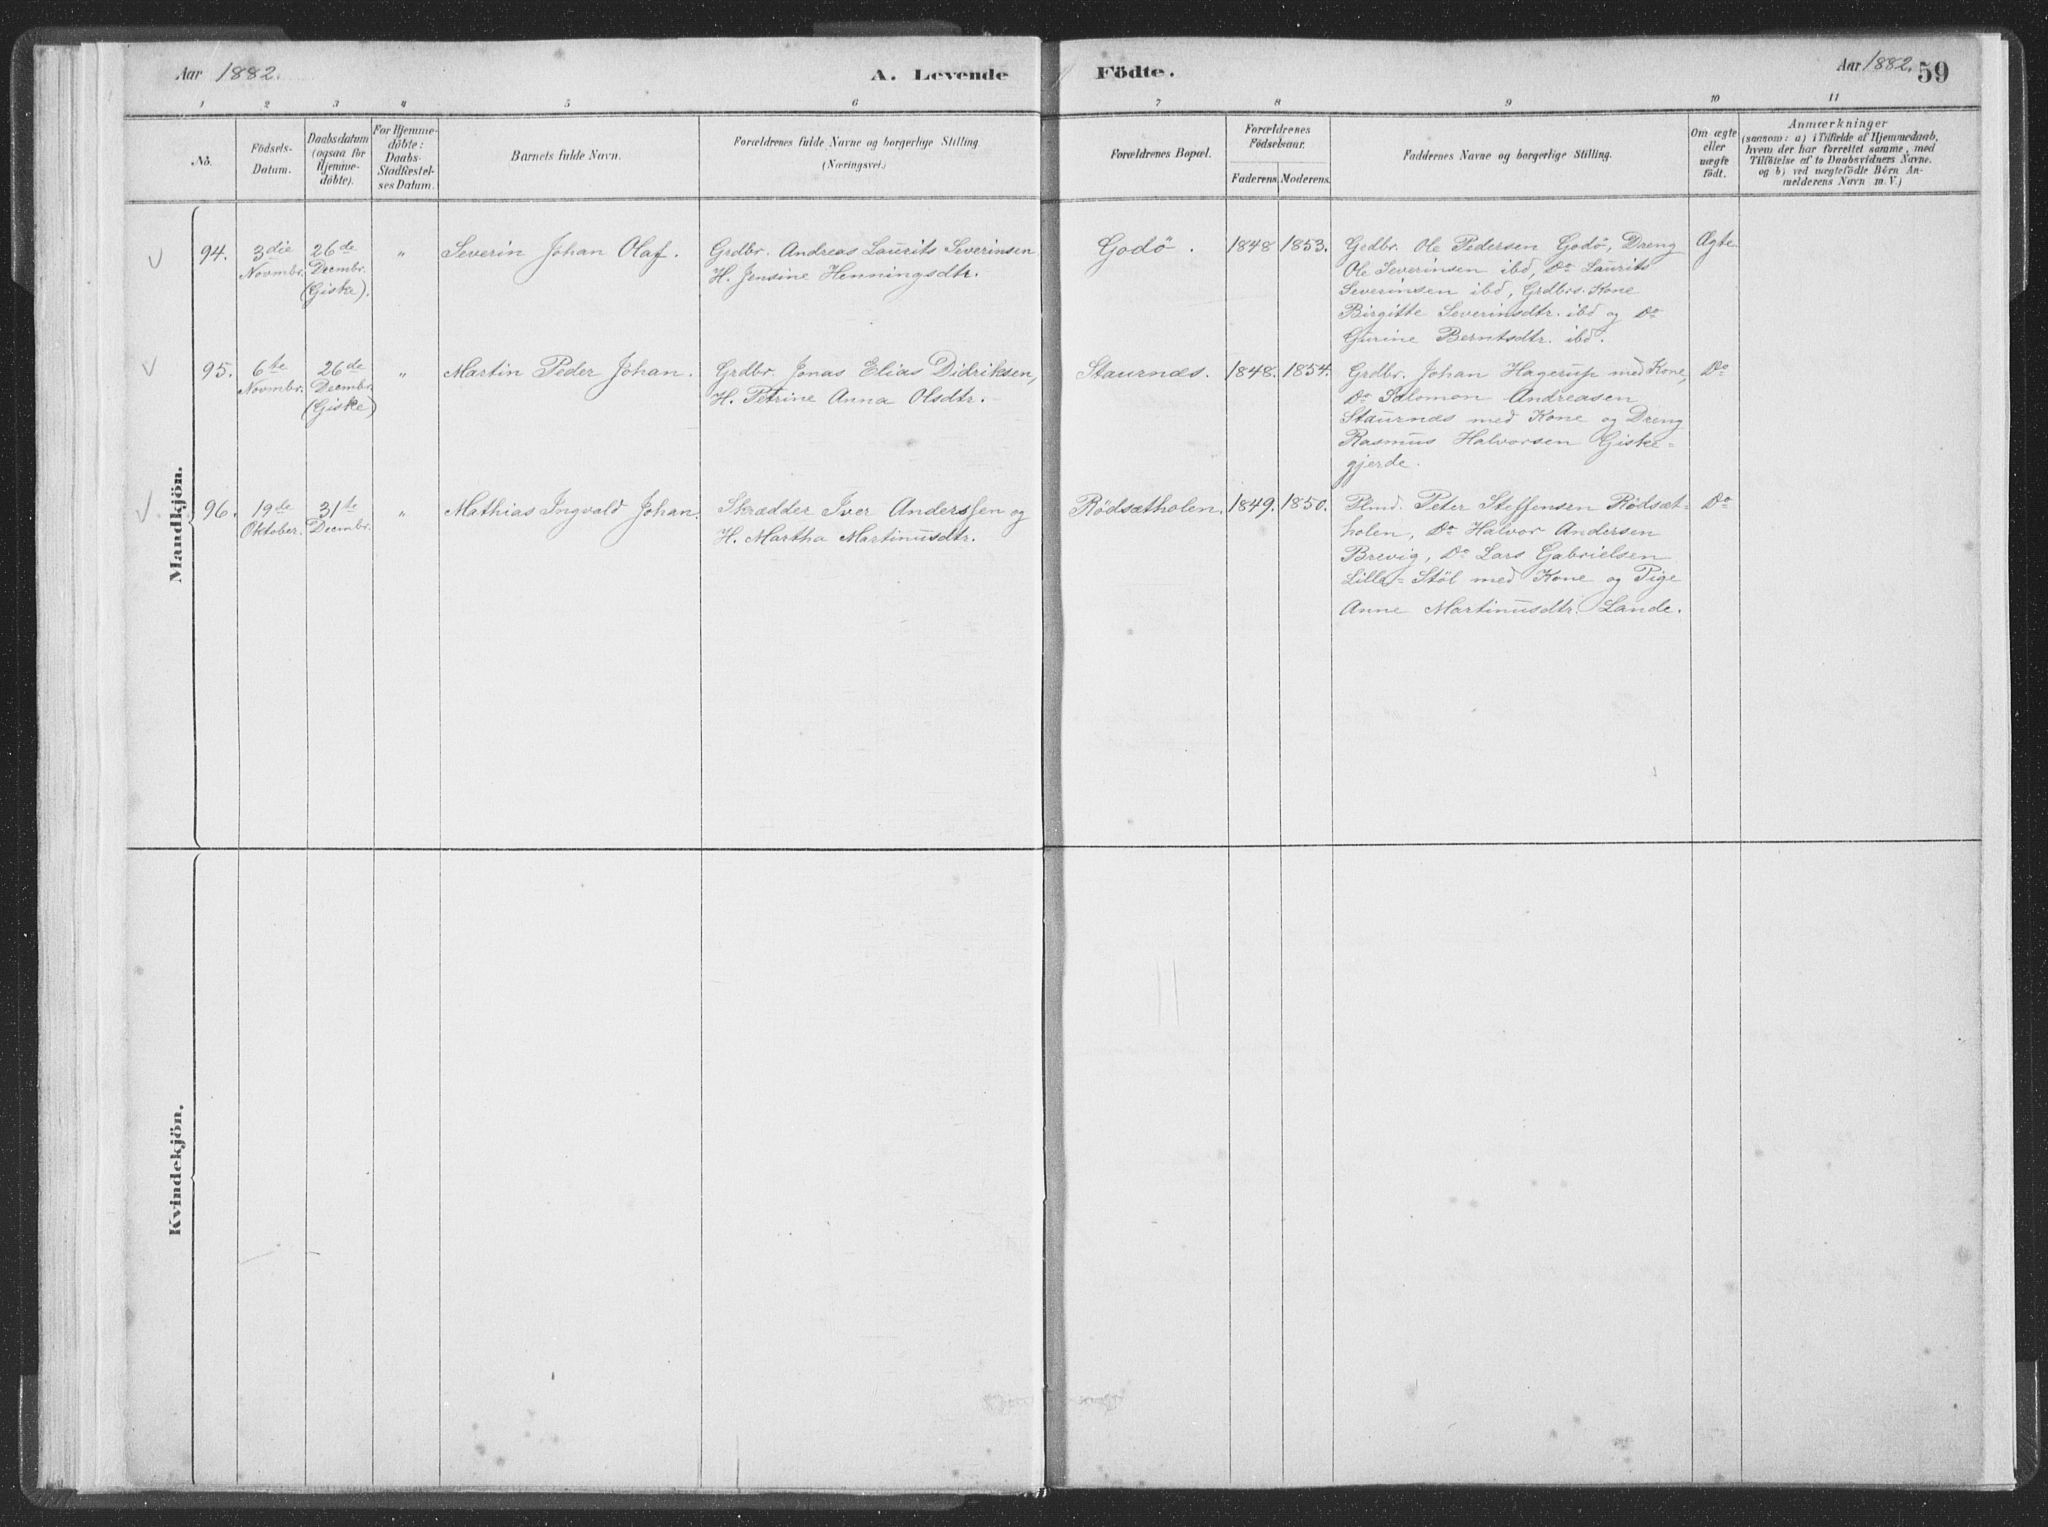 Aar 1882.
A. Levende
Födte.
Aar 1882. 59
1 2 3 4 5 6 7 8 9 10 11
No.
Födsels-
Datum.
Daabsdatum
(ogsaa for
Hjemme-
döbte).
For Hjemme-
döbte:
Daabs-
Stadfæstel-
ses Datum.
Barnets fulde Navn.
Forældrenes fulde Navne og borgerlige Stilling
(Næringsvei.)
Forældrenes Bopæl.
Forældrenes
Födselsaar.
Faderens. Moderens.
Faddernes Navne og borgerlige Stilling.
Om ægte
eller
uægte
födt.
Anmærkninger
(saasom: a) i Tilfælde af Hjemmedaab,
hvem der har forrettet samme, med
Tilföielse af to Daabsvidners Navne.
og b) ved uægtefödte Börn An-
melderens Navn m. V.)
Mandkjön.
94.
3die
Novmbr.
26de
Decmbr.
(Giske).
"
Severin Johan Olaf.
Grdbr. Andreas Laurits Severinsen
H. Jensine Henningsdtr.
Godø.
1848
1853.
Grdbr. Ole Pedersen Godø, Dreng
Ole Severinsen ibd, Do Laurits
Severinsen ibd, Grdbrs. Kone
Birgitte Severinsdtr. ibd og Do
Gurine Berntsdtr. ibd.
Ægte
95.
6te
Novmbr.
26de
Decmbr.
(Giske)
"
Martin Peder Johan.
Grdbr. Jonas Elias Didriksen,
H. Petrine Anna Olsdtr.
Staurnæs.
1848.
1854.
Grdbr. Johan Hagerup med Kone,
Do Salomon Andreasen
Staurnæs med Kone og Dreng
Rasmus Halvorsen Giske-
gjerde.
Do
96.
19de
Oktober.
31te
Decmbr.
"
Mathias Ingvald Johan.
Skrædder Iver Anderssen og
H. Martha Martinusdtr.
Rødsætholen.
1849.
1850.
Plmd. Peter Steffensen Rødsæt-
holen, Do Halvor Andersen
Brevig, Do Lars Gabrielsen
Lille-Støl med Kone og Pige
Anne Martinusdtr. Lande.
Do
Kvindekjön.